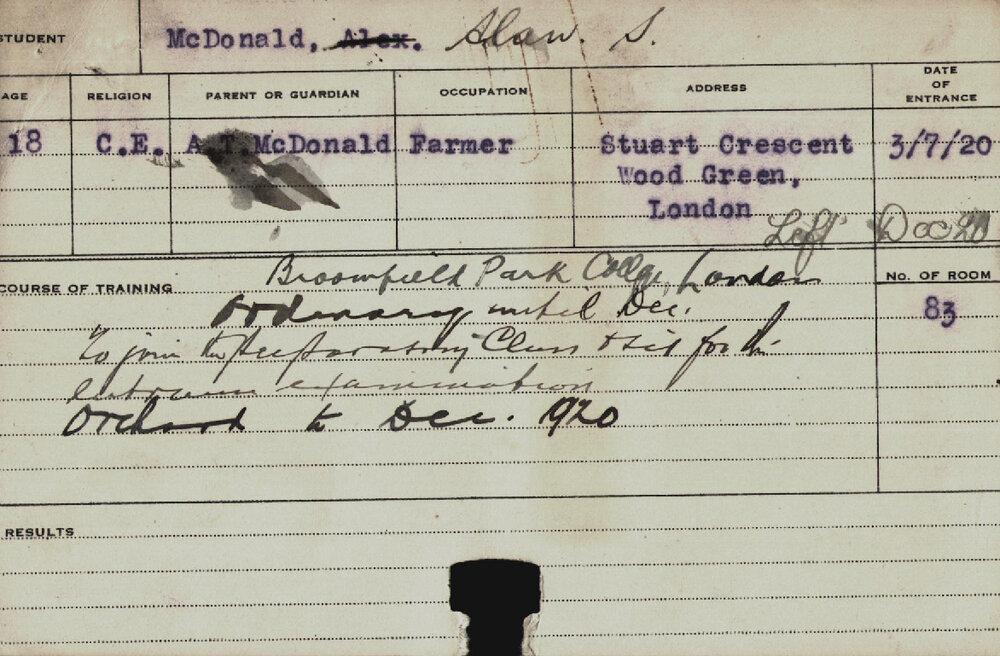 STUDENT McDonald, Alex. Alan. S.
AGE RELIGION PARENT OR GUARDIAN OCCUPATION ADDRESS DATE OF ENTRANCE
18 C.E. A.T. McDonald Farmer Stuart Crescent 3/7/20
Wood Green,
London
Left Dec 20
COURSE OF TRAINING Broomfield Park College, London
Ordinary until Dec.
To join the preparatory Class & sit for the
entrance examination
Orchard to Dec. 1920
No. OF ROOM
83
RESULTS